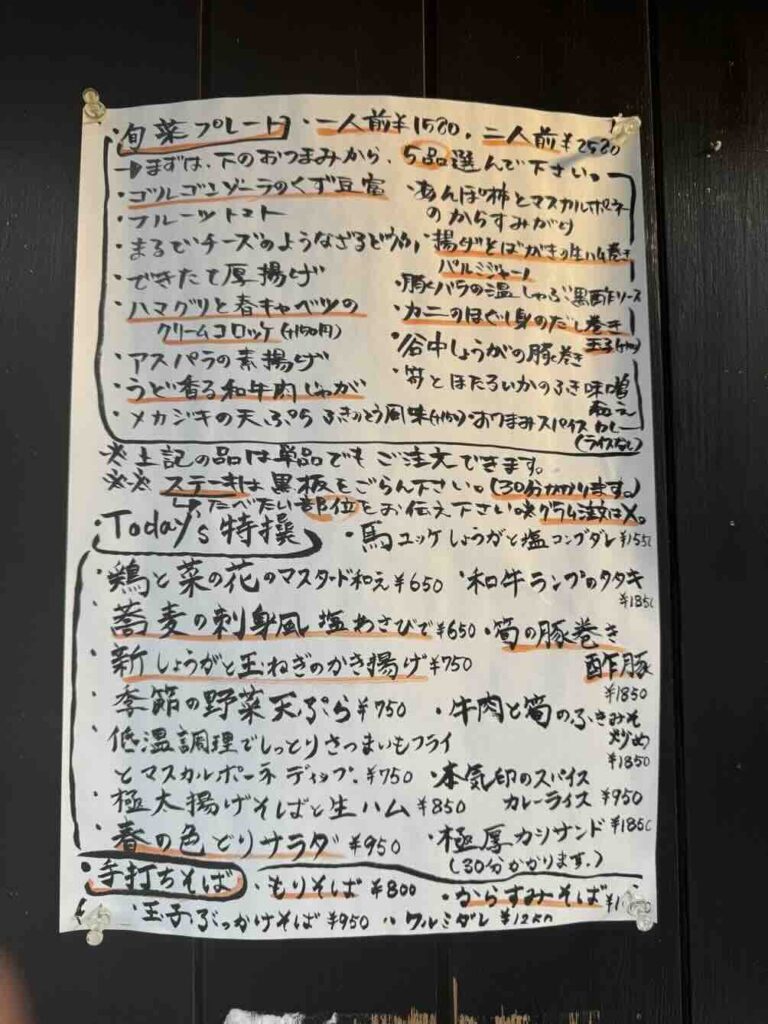 ・旬菜プレート・一人前¥1580, 二人前¥2580
→まずは、下のおつまみから、5品選んで下さい。
・ゴルゴンゾーラのくず豆富
・フルーツトマト
・まるでチーズのようなざるどうふ
・できたて厚揚げ
・ハマグリと春キャベツの
クリームコロッケ(+150円)
・アスパラの素揚げ
・うど香る和牛肉じゃが
・メカジキの天ぷら ふきのとう風味
・あんぽ柿とマスカルポーネ
のからすみがけ
・揚げそばがきの生ハム巻き
パルミジャーノ
・豚バラの温しゃぶ黒酢ソース
・カニのほぐし身のだし巻き
玉子
・谷中しょうがの豚巻き
・筍とほたるいかのふき味噌
和え
・おつまみスパイスカレー
(ライスなし)
※上記の品は単品でもご注文できます。
※※ステーキは黒板をごらん下さい。(30分かかります。)
たべたい部位をお伝え下さい。※グラム注文はX。
・Today's 特撰
・馬ユッケしょうがと塩コンブダレ
・鶏と菜の花のマスタード和え¥650
・和牛ランプのタタキ
¥1850
・蕎麦の刺身風 塩わさびで¥650
・筍の豚巻き
酢豚
¥1850
・新しょうがと玉ねぎのかき揚げ¥750
・季節の野菜天ぷら¥750
・牛肉と筍のふきみそ
炒め
¥1850
・低温調理でしっとりさつまいもフライ
とマスカルポーネ ディップ. ¥750
・本気印のスパイス
カレーライス ¥950
・極太揚げそばと生ハム¥850
・極厚カツサンド
(30分かかります。)
・春の色どりサラダ¥950
・手打ちそば
・もりそば¥800
・からすみそば
・玉子ぶっかけそば¥950
〃クルミダレ ¥1250